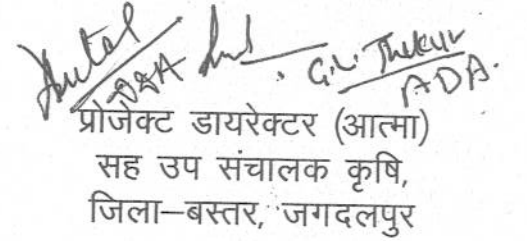 G.L. Thakur
ADA.
प्रोजेक्ट डायरेक्टर (आत्मा)
सह उप संचालक कृषि,
जिला–बस्तर, जगदलपुर